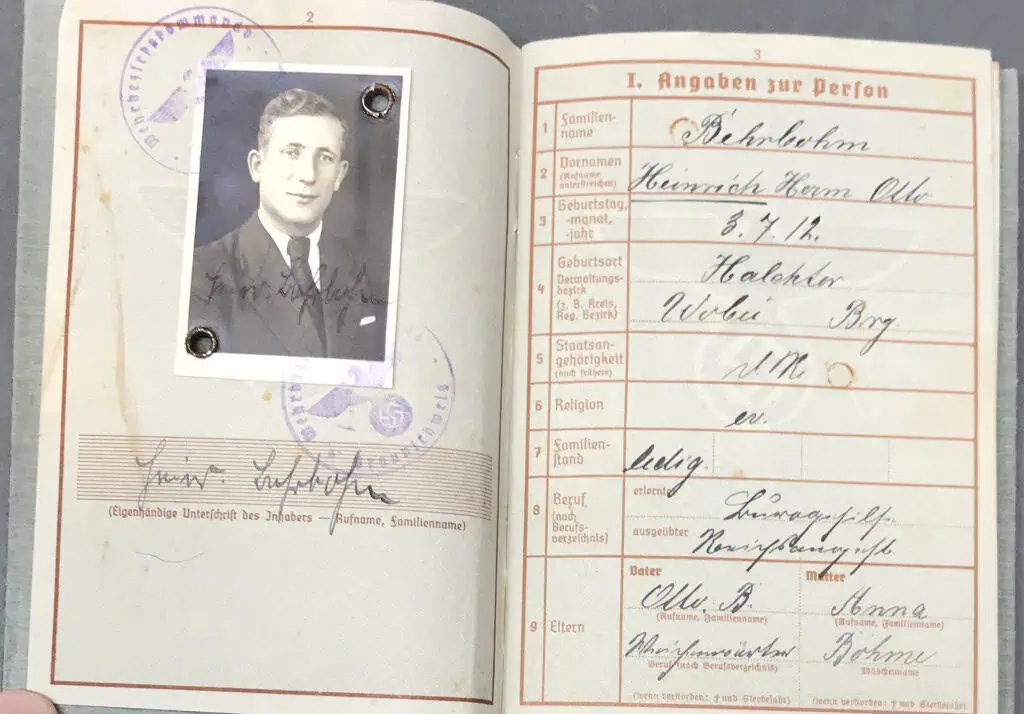 2
Wehrbezirkskommando
Heinr. Behrbohm
Braunschweig
Heinr. Behrbohm
(Eigenhändige Unterschrift des Inhabers — Rufname, Familienname)
3
I. Angaben zur Person
1 Familien-
name
Behrbohm
2 Vornamen
(Rufname
unterstreichen)
Heinrich Herm Otto
3 Geburtstag,
-monat,
-jahr
3. 7. 12.
4 Geburtsort
Verwaltungs-
bezirk
(z. B. Kreis,
Reg. Bezirk)
Halchter
Brg.
5 Staatsan-
gehörigkeit
(auch frühere)
6 Religion
ev.
7 Familien-
stand
ledig.
8 Beruf
(nach
Berufs-
verzeichnis)
erlernter
Bürogehilfe
ausgeübter
Reichsangest.
9 Eltern
Vater
Mutter
Otto. B.
Anna
(Rufname, Familienname)
(Rufname, Familienname)
Weichenwärter
Böhme
Beruf (nach Berufsverzeichnis)
Mädchenname
(wenn verstorben: † und Sterbejahr)
(wenn verstorben: † und Sterbejahr